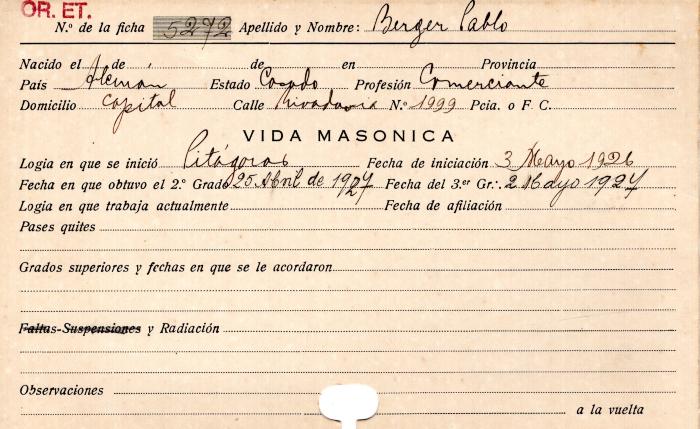 OR. ET.
N.º de la ficha 5272 Apellido y Nombre: Berger Pablo
Nacido el de de en Provincia
País Alemán Estado Casado Profesión Comerciante
Domicilio Capital Calle Rivadavia N.º 1999 Pcia. o F. C.
VIDA MASONICA
Logia en que se inició Pitágoras Fecha de iniciación 3 Mayo 1926
Fecha en que obtuvo el 2.º Grado 25 Abril de 1927 Fecha del 3.er Gr∴ 2 Mayo 1927
Logia en que trabaja actualmente Fecha de afiliación
Pases quites
Grados superiores y fechas en que se le acordaron
Faltas-Suspensiones y Radiación
Observaciones
a la vuelta